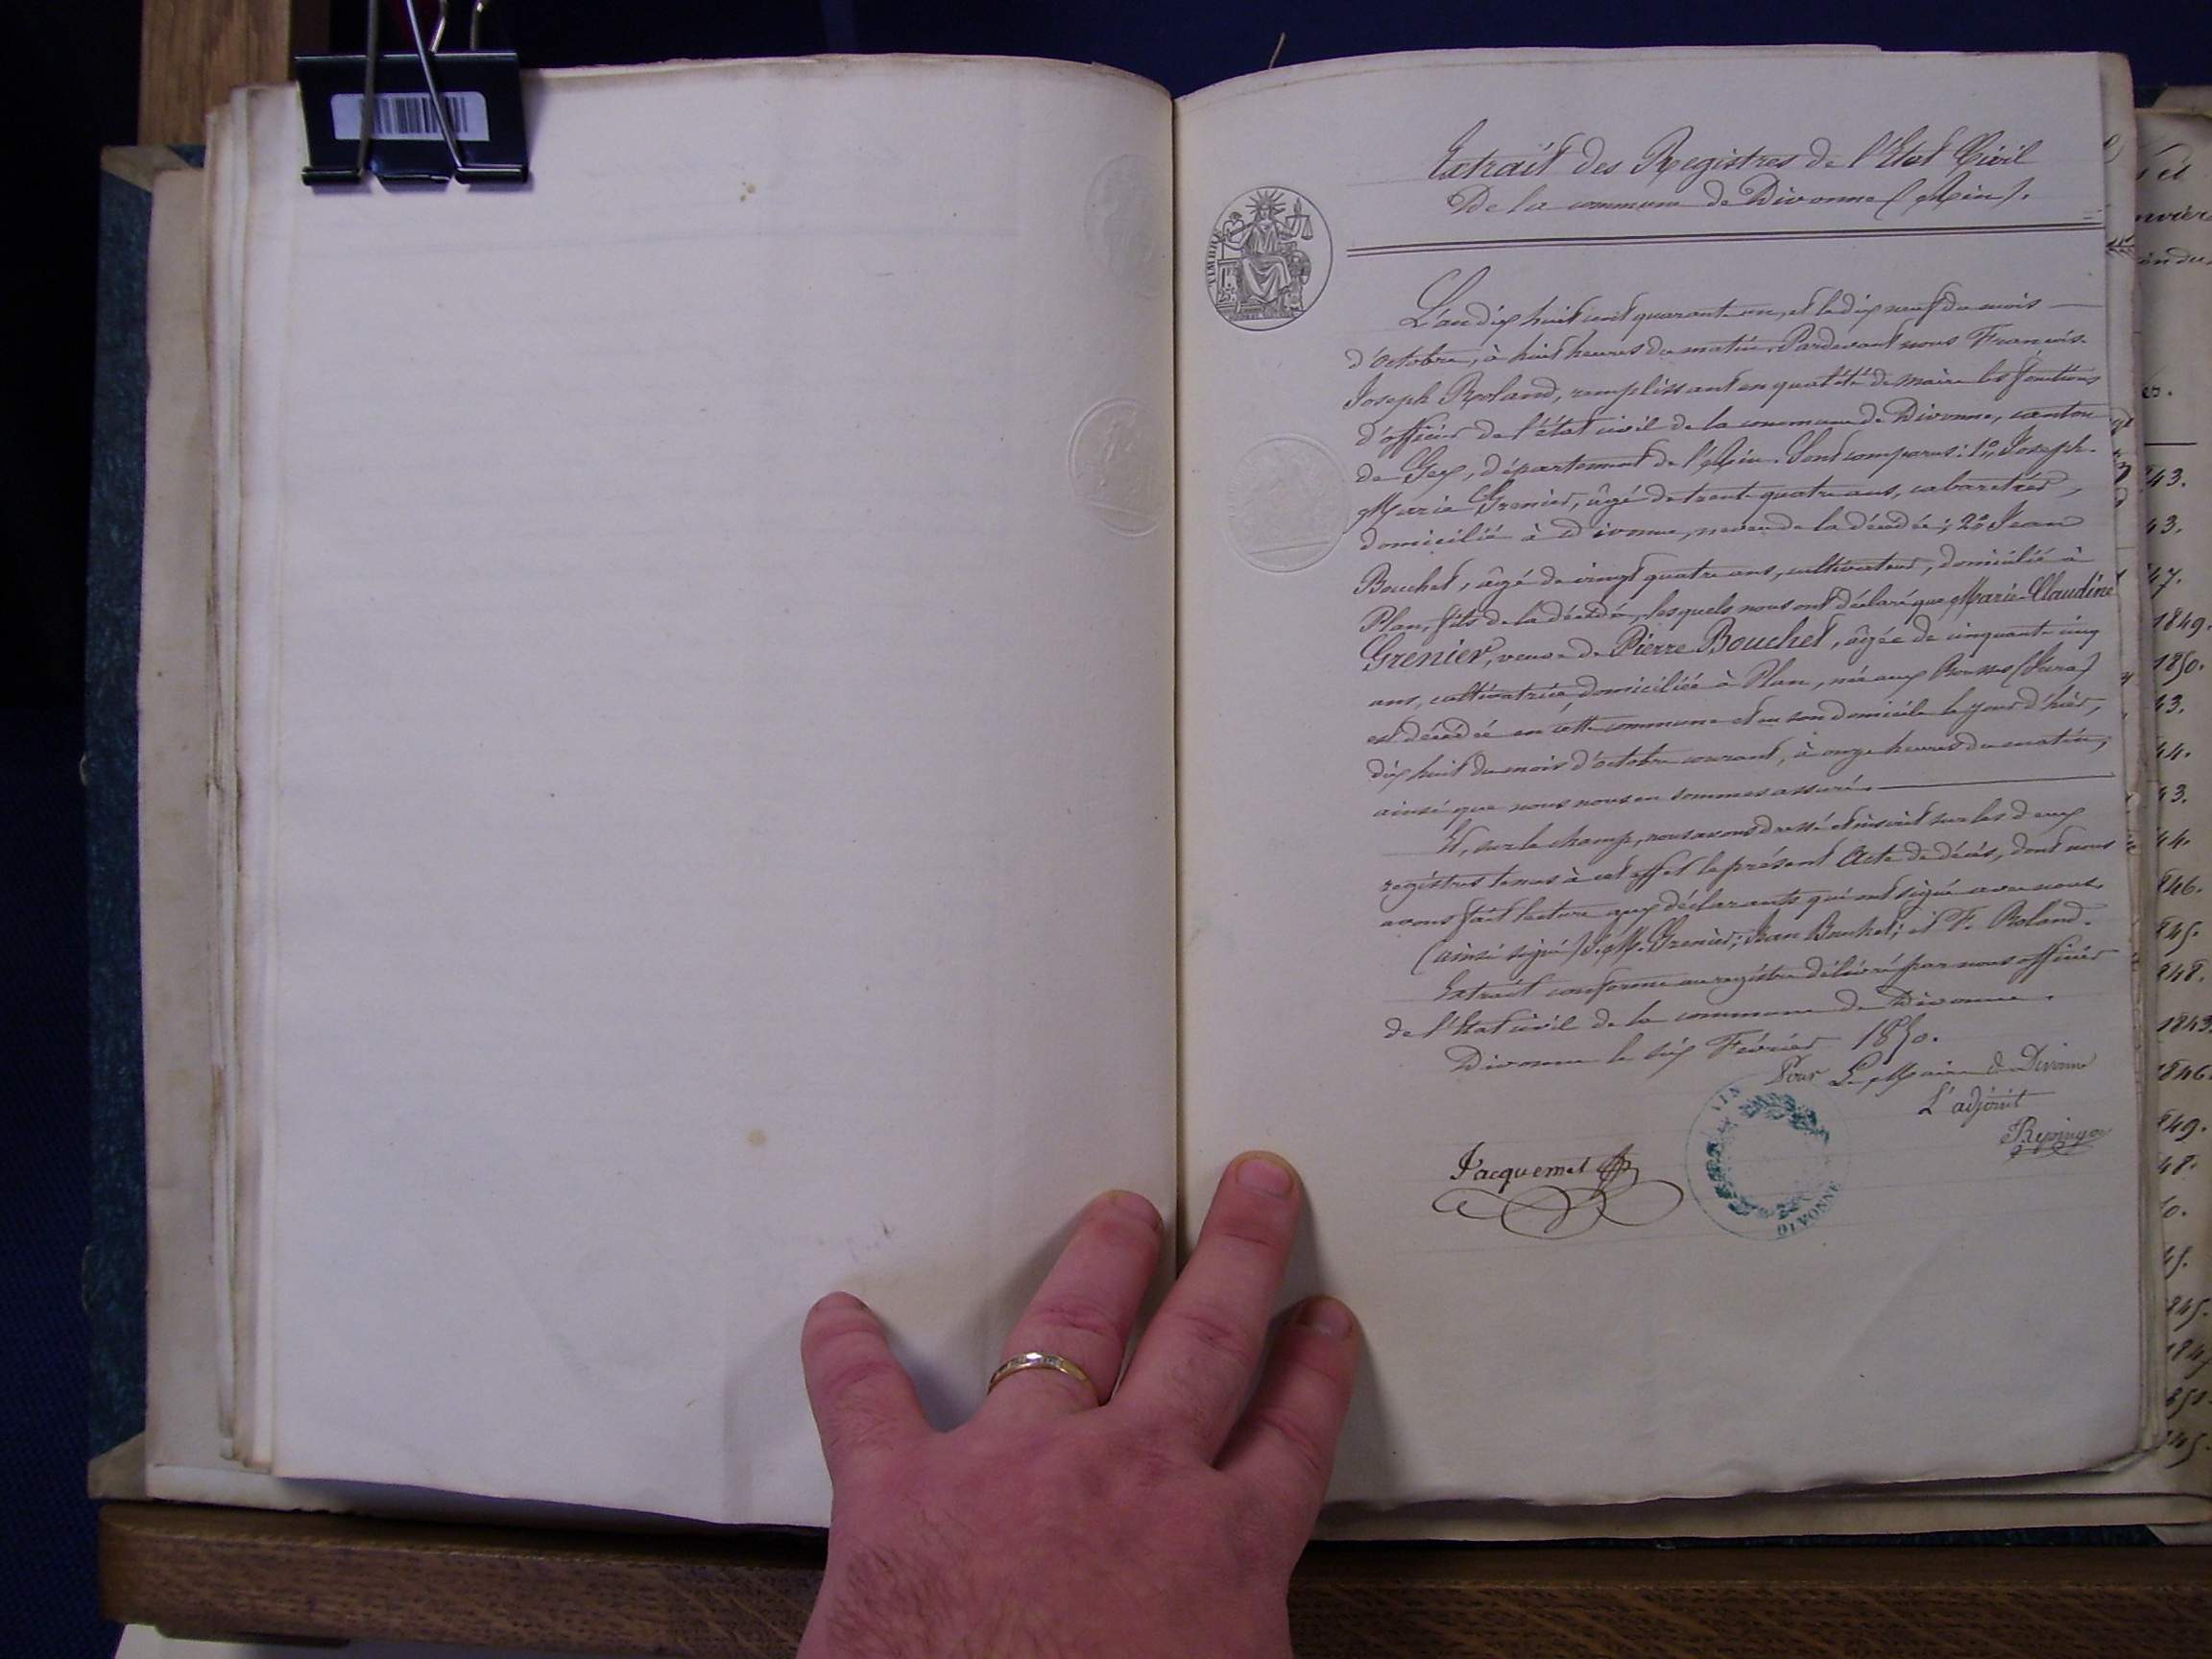 Extrait des Registres de l'Etat Civil
De la commune de Divonne (Ain).
TIMBRE
L'an dix huit cent quarante un, et le dix neuf du mois
d'Octobre, à huit heures du matin. Pardevant nous François-
Joseph Roland, remplissant en qualité de maire les fonctions
d'officier de l'état civil de la commune de Divonne, canton
de Gex, département de l'Ain. Sont comparus: 1° Joseph-
Marie Grenier, âgé de trente quatre ans, cabaretier,
domicilié à Divonne, neveu de la décédée; 2° Jean
Bouchet, âgé de vingt quatre ans, cultivateur, domicilié à
Plan, fils de la décédée, lesquels nous ont déclaré que Marie-Claudine
Grenier, veuve de Pierre Bouchet, âgée de cinquante cinq
ans, cultivatrice, domiciliée à Plan, née aux Rousses (Jura)
est décédée en cette commune et en son domicile le jour d'hier,
dix huit du mois d'octobre courant, à onze heures du matin,
ainsi que nous nous en sommes assuré.
Et, sur le champ, nous avons dressé et inscrit sur les deux
registres tenus à cet effet le présent Acte de décès, dont nous
avons fait lecture aux déclarants qui ont signé avec nous.
(ainsi signé) J. M. Grenier; Jean Bouchet; et F. Roland.
Extrait conforme au registre délivré par nous officier
de l'Etat civil de la commune de Divonne.
Divonne le six Février 1850.
Pour Le Maire de Divonne
L'adjoint
Jacquemet
AIN
DIVONNE
43.
43.
47.
1849.
1850.
43.
44.
43.
44.
846.
845.
848.
1843.
1846.
849.
48.